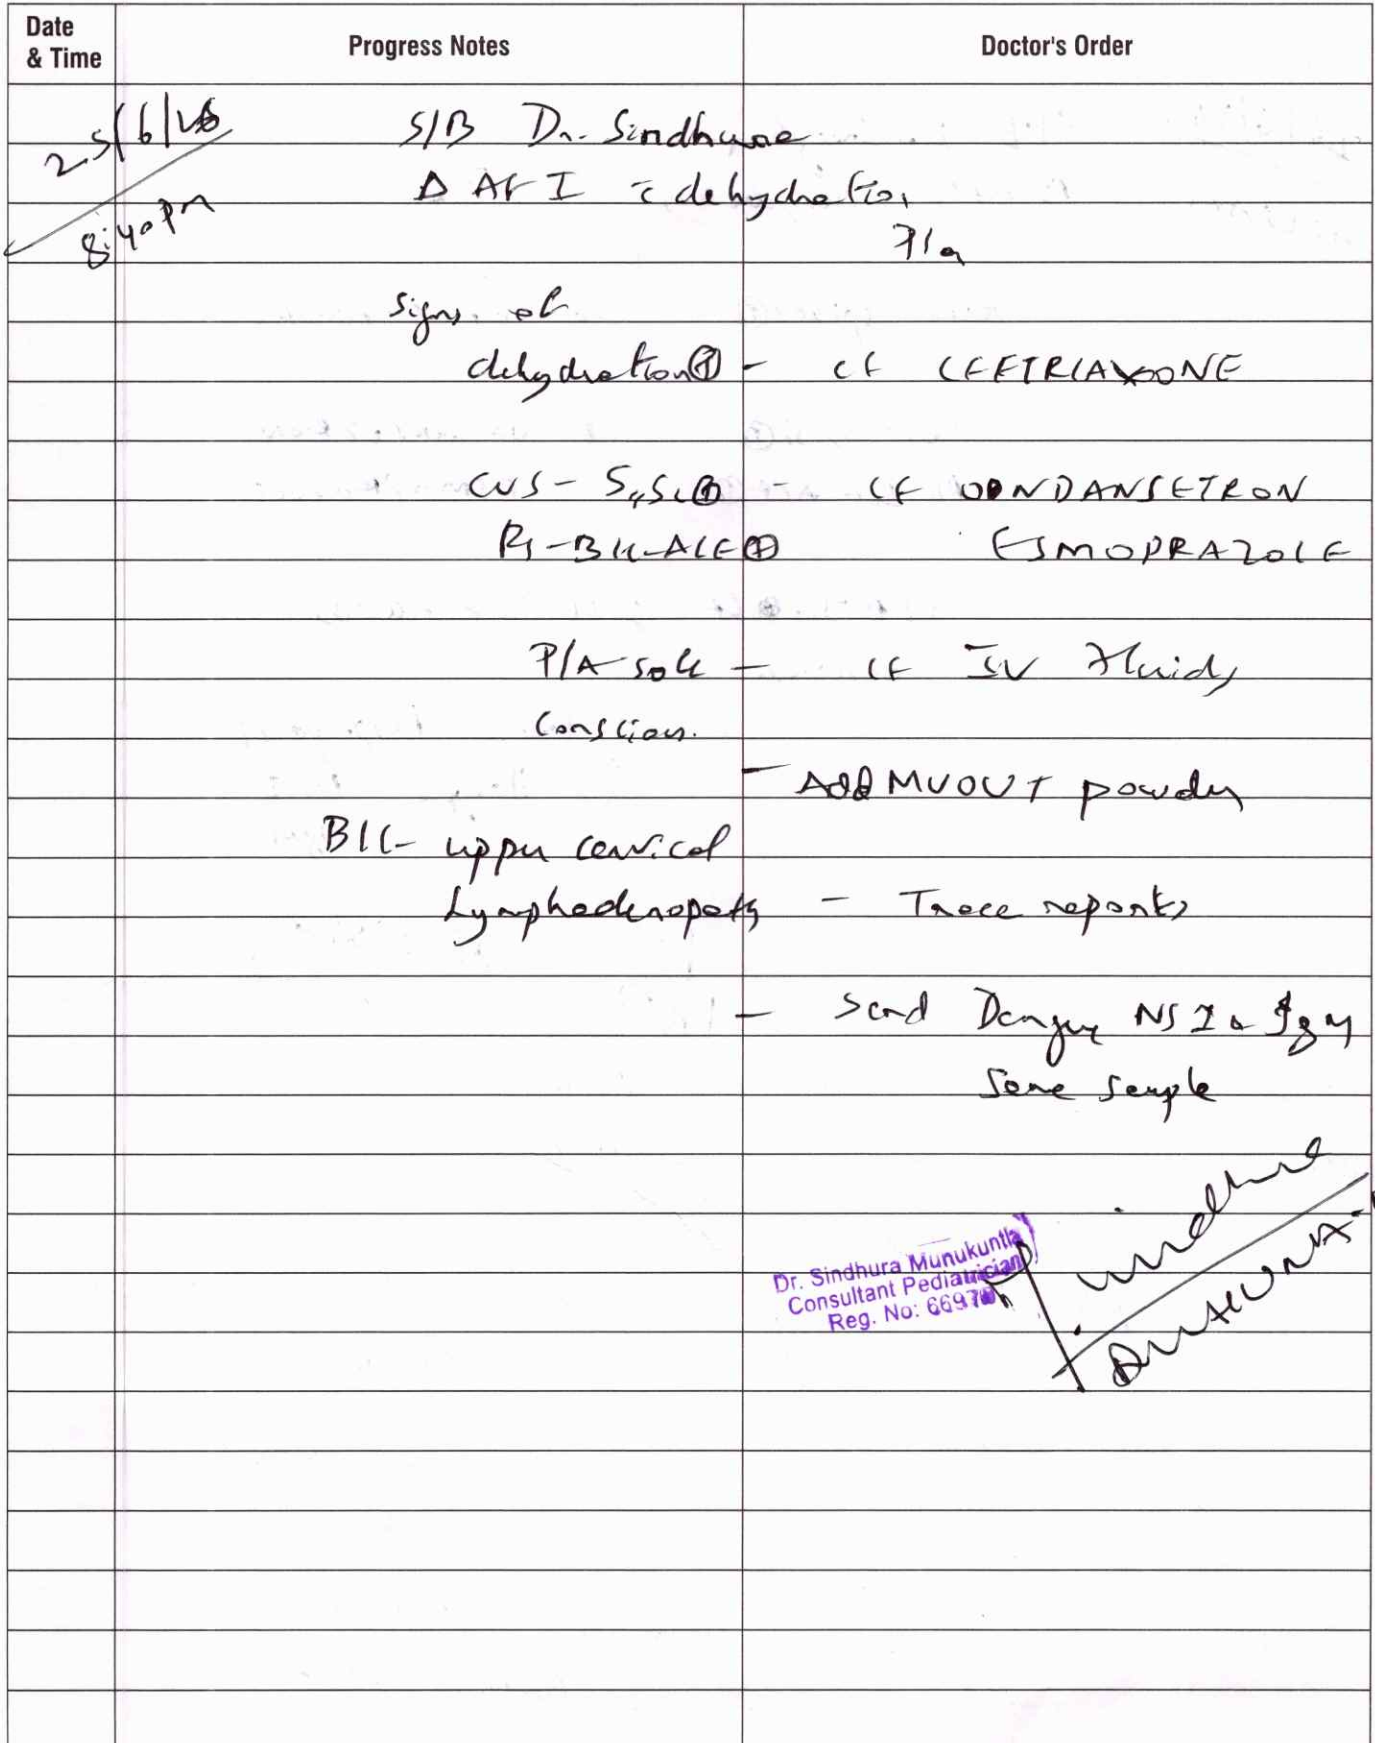 Date & Time Progress Notes Doctor's Order
25/6/
8:40 pm
S/B Dr. Sindhura
Δ AFI c̄ dehydration
Pla
Signs of
dehydration⊕ - CF CEFTRIAXONE
CVS - S₁S₂⊕ - CF ONDANSETRON
RS - B/L - AE⊕ ESMOPRAZOLE
P/A soft - CF IV Fluids
Conscious.
- Add MUOUT powder
B/L - upper cervical
Lymphadenopathy - Trace reports
- Send Dengue NS1 & IgM
Same sample
Dr. Sindhura Munukuntla
Consultant Pediatrician
Reg. No: 6697
Sindhura